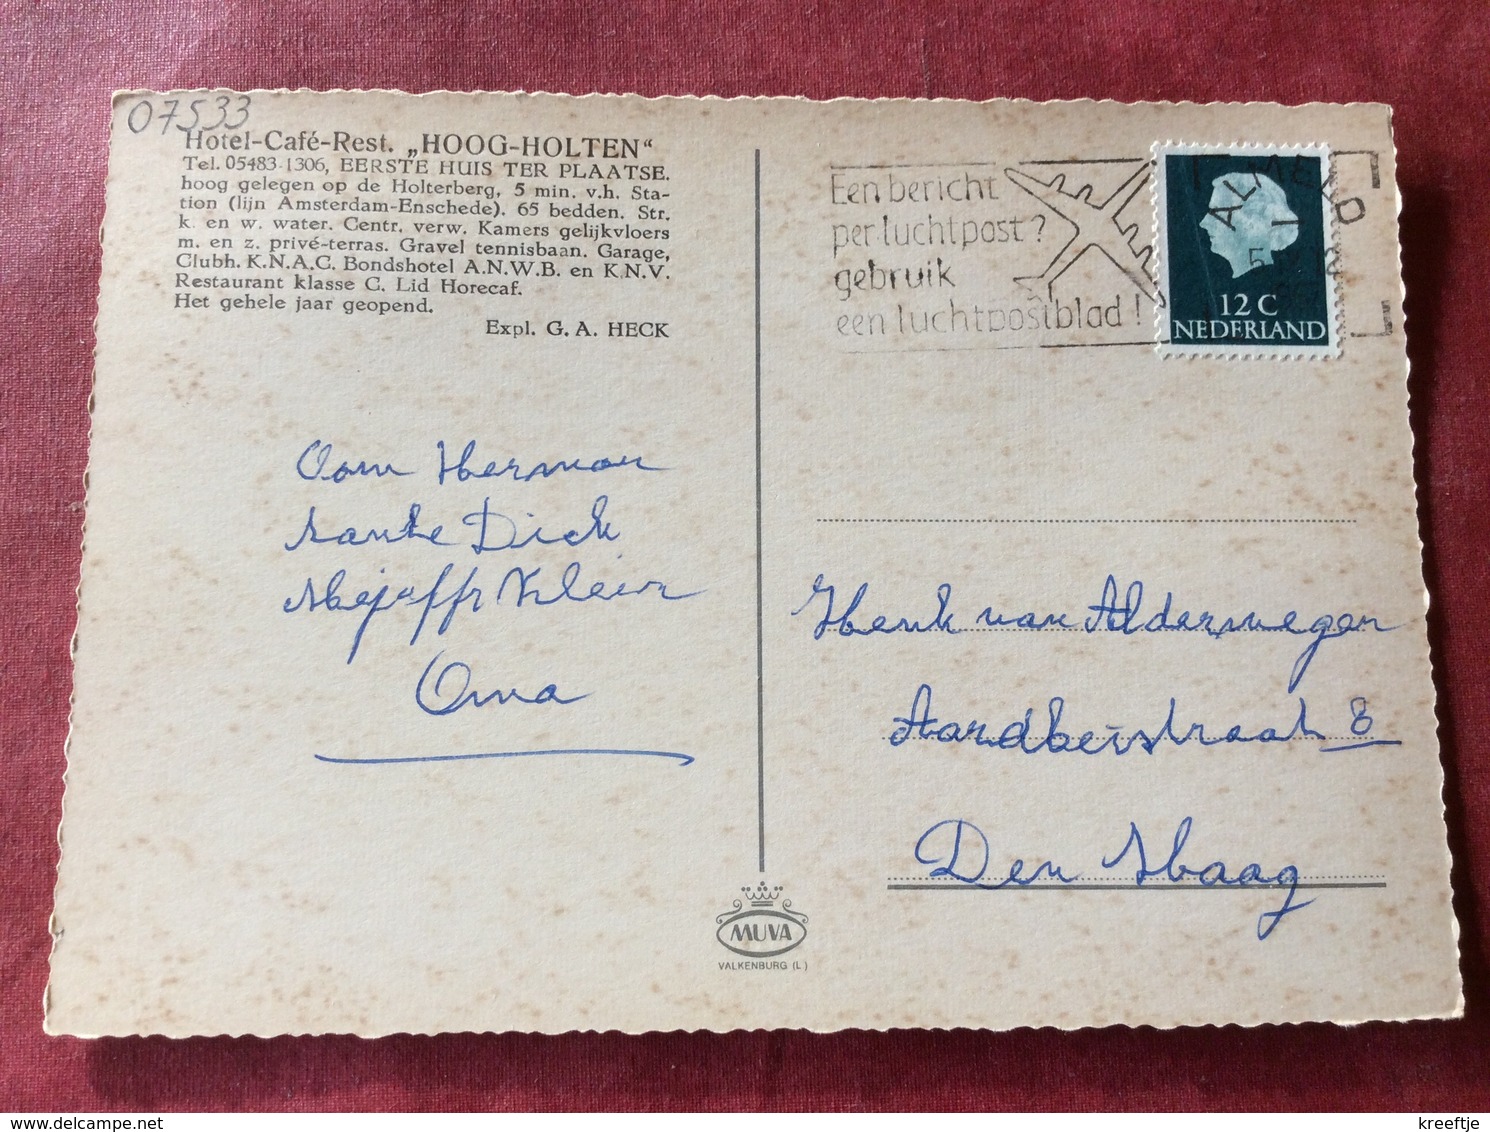 07533
Hotel-Café-Rest. „HOOG-HOLTEN“
Tel. 05483-1306, EERSTE HUIS TER PLAATSE.
hoog gelegen op de Holterberg, 5 min. v.h. Sta-
tion (lijn Amsterdam-Enschede). 65 bedden. Str.
k. en w. water. Centr. verw. Kamers gelijkvloers
m. en z. privé-terras. Gravel tennisbaan. Garage,
Clubh. K.N.A.C. Bondshotel A.N.W.B. en K.N.V.
Restaurant klasse C. Lid Horecaf.
Het gehele jaar geopend.
Expl. G. A. HECK
Oom Herman
tante Dick
Mejuffr Klein
Oma
Een bericht
per luchtpost?
gebruik
een luchtpostblad!
ALMELO
12 C
NEDERLAND
Henk van Alderwegen
Aardbeistraat 8
Den Haag
MUVA
VALKENBURG (L)
kreeftje